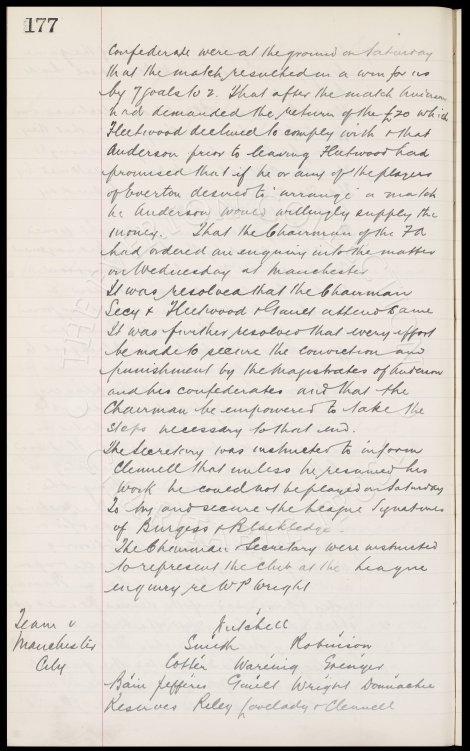 177
Confederate were at the ground on Saturday
that the match resulted in a win for us
by 7 goals to 2. That after the match Anderson
had demanded the return of the £20 which
Fleetwood declined to comply with & that
Anderson prior to leaving Fleetwood had
promised that if he or any of the players
of Everton desired to 'arrange' a match
he Anderson would willingly supply the
money. That the Chairman of the Fa
had ordered an enquiry into the matter
on Wednesday at Manchester
It was resolved that the Chairman
Secy & Fleetwood & Gault attend same
It was further resolved that every effort
be made to secure the conviction and
punishment by the magistrates of Anderson
and his confederates and that the
Chairman be empowered to take the
steps necessary to that end.
The Secretary was instructed to inform
Clennell that unless he resumed his
work he could not be played on Saturday
To try and secure the League Signatures
of Burgess & Blackledge.
The Chairman & Secretary were instructed
to represent the Club at the League
enquiry re W P Wright
Team v
Manchester
City
Mitchell
Smith Robinson
Cotter Wareing Grenyer
Bain Jefferis Gault Wright Donnachie
Reserves Riley Lovelady & Clennell